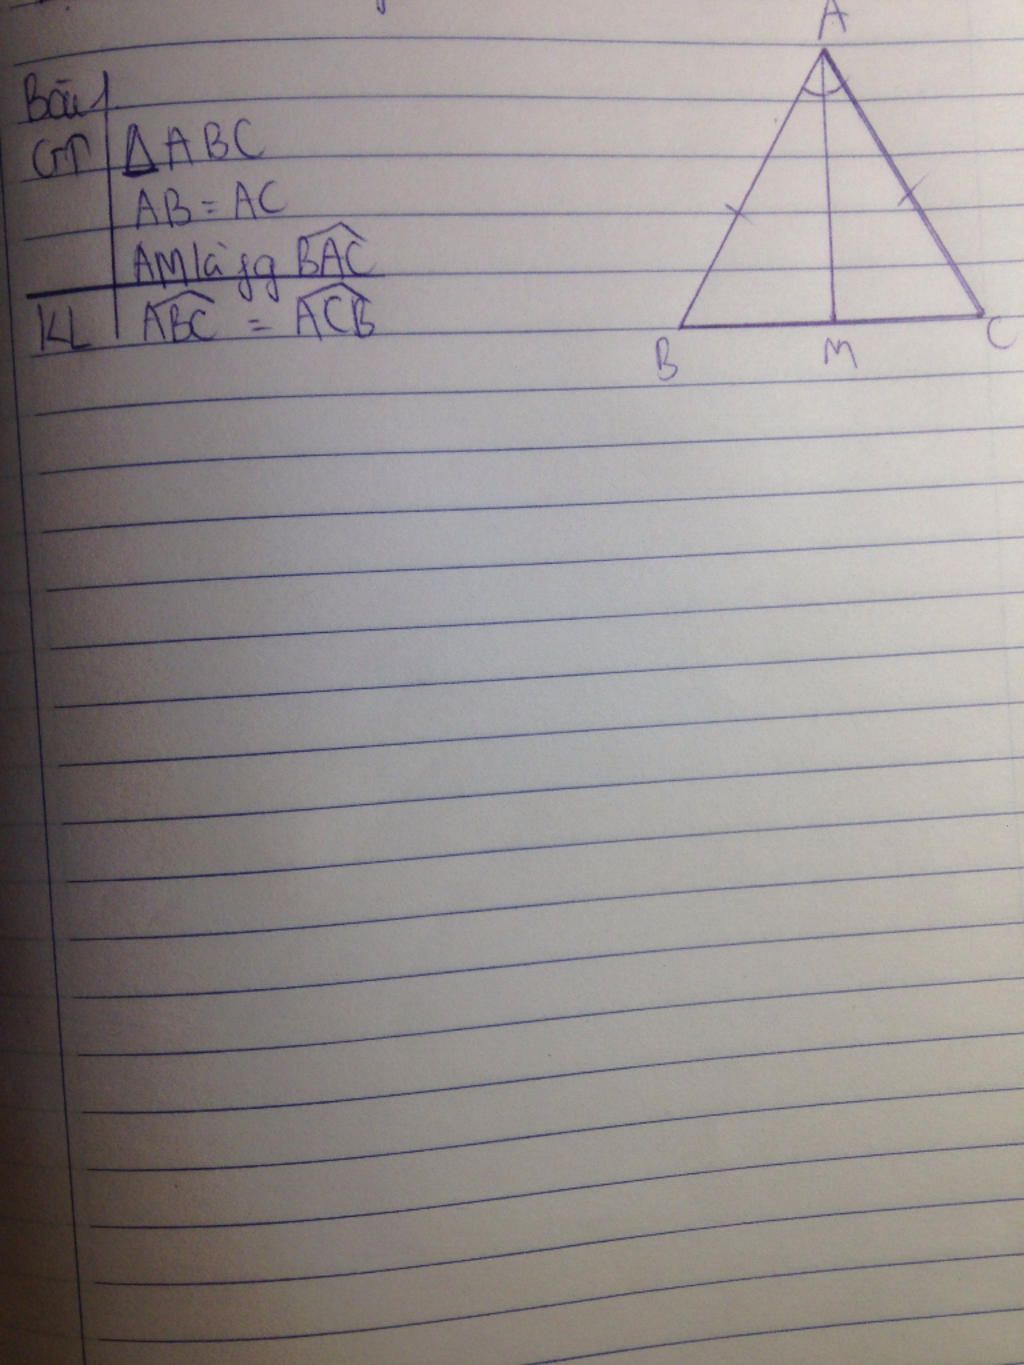 Bài 1
GT ΔABC
AB = AC
AM là gg BAC
KL ABC = ACB
A
B M C